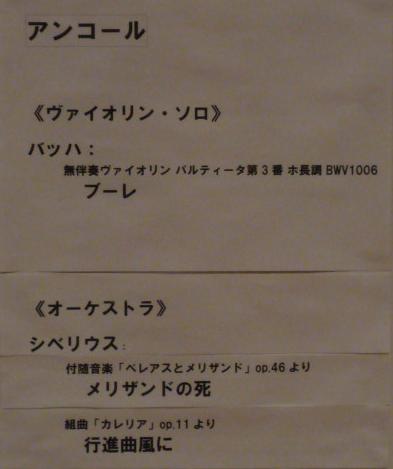 アンコール
《ヴァイオリン・ソロ》
バッハ：
無伴奏ヴァイオリン パルティータ第3番 ホ長調 BWV1006
ブーレ
《オーケストラ》
シベリウス：
付随音楽「ペレアスとメリザンド」op.46 より
メリザンドの死
組曲「カレリア」op.11 より
行進曲風に